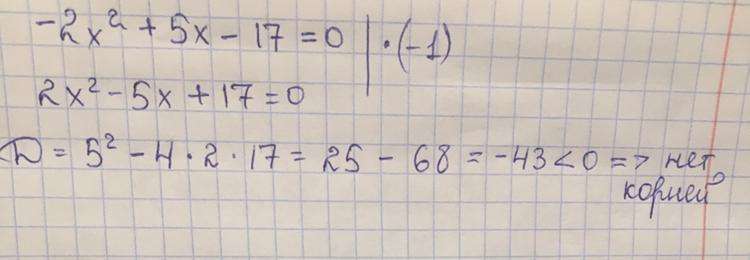 -2x² + 5x - 17 = 0 | · (-1)
2x² - 5x + 17 = 0
D = 5² - 4 · 2 · 17 = 25 - 68 = -43 < 0 => нет
корней